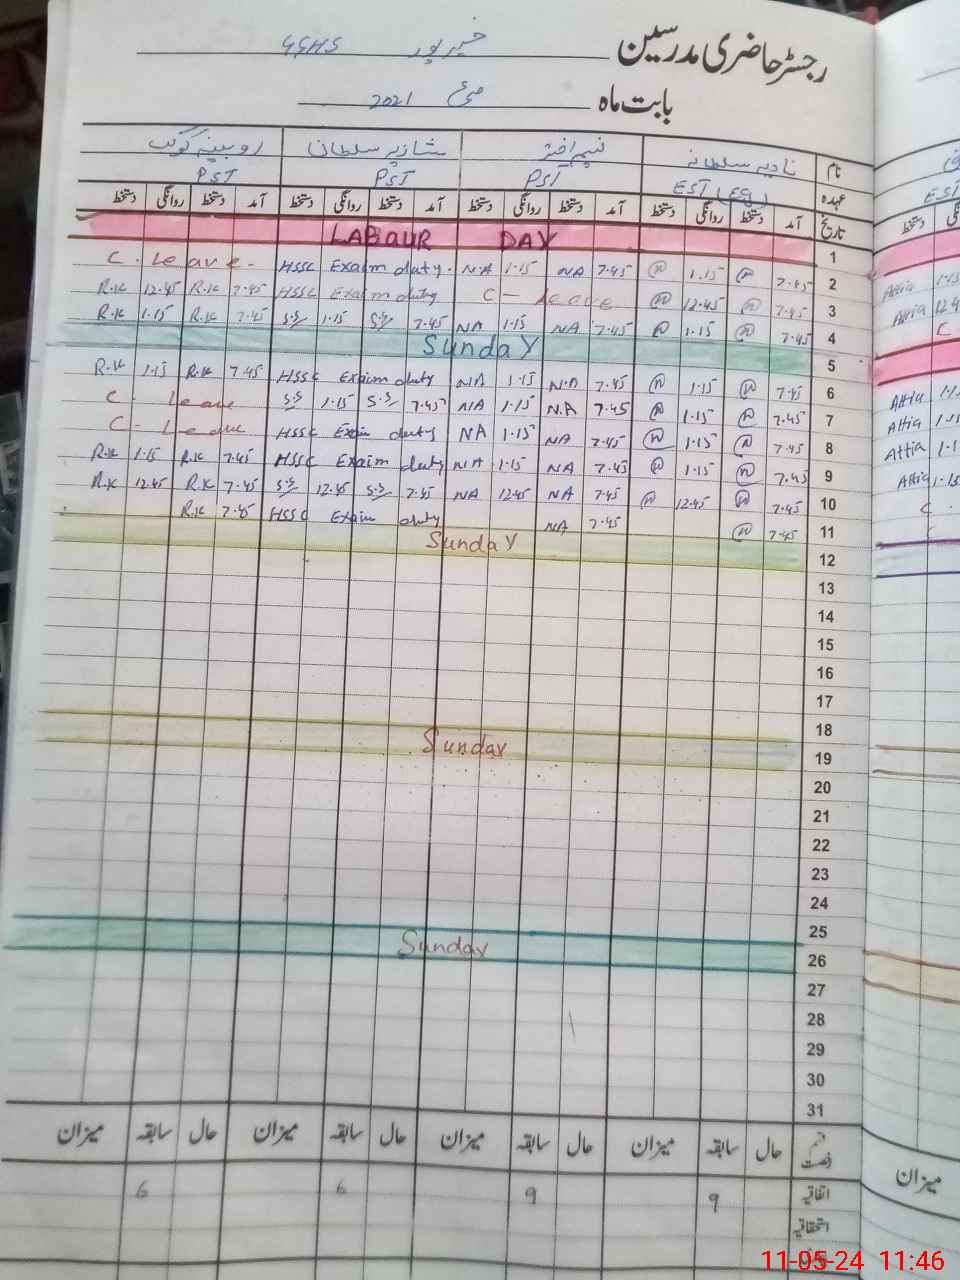 رجسٹر حاضری مدرسین خیرپور GGHS
بابت ماہ مئی 2021
نام نادیہ سلطانہ نسیم اختر شازیہ سلطان روبینہ کوکب
عہدہ EST (Eng) PST PST PST
تاریخ آمد دستخط روانگی دستخط آمد دستخط روانگی دستخط آمد دستخط روانگی دستخط آمد دستخط روانگی دستخط
LABOUR DAY 1
C. Leave. HSSC Exaim duty. NA 1.15 NA 7.45 1.15 7.45 2
R.K 12.45 R.K 7.45 HSSC Exaim duty C - leave 12.45 7.45 3
R.K 1.15 R.K 7.45 S.S 1.15 S.S 7.45 NA 1.15 NA 7.45 1.15 7.45 4
Sunday 5
R.K 1.15 R.K 7.45 HSSC Exaim duty NA 1.15 NA 7.45 1.15 7.45 6
C. Leave S.S 1.15 S.S 7.45 NA 1.15 NA 7.45 1.15 7.45 7
C - Leave HSSC Exaim duty NA 1.15 NA 7.45 1.15 7.45 8
R.K 1.15 R.K 7.45 HSSC Exaim duty NA 1.15 NA 7.45 1.15 7.45 9
R.K 12.45 R.K 7.45 S.S 12.45 S.S 7.45 NA 12.45 NA 7.45 12.45 7.45 10
R.K 7.45 HSSC Exaim duty NA 7.45 7.45 11
Sunday 12
13
14
15
16
17
18
Sunday 19
20
21
22
23
24
25
Sunday 26
27
28
29
30
31
قسم رخصت حال سابقہ میزان حال سابقہ میزان حال سابقہ میزان حال سابقہ میزان
اتفاقیہ 9 9 6 6
استحقاقیہ
EST
دستخط
Attia 1.15
Attia 12.4
C
Attia
Attia
Attia 1.1
Attia 1.15
C
C
میزان
11-05-24 11:46